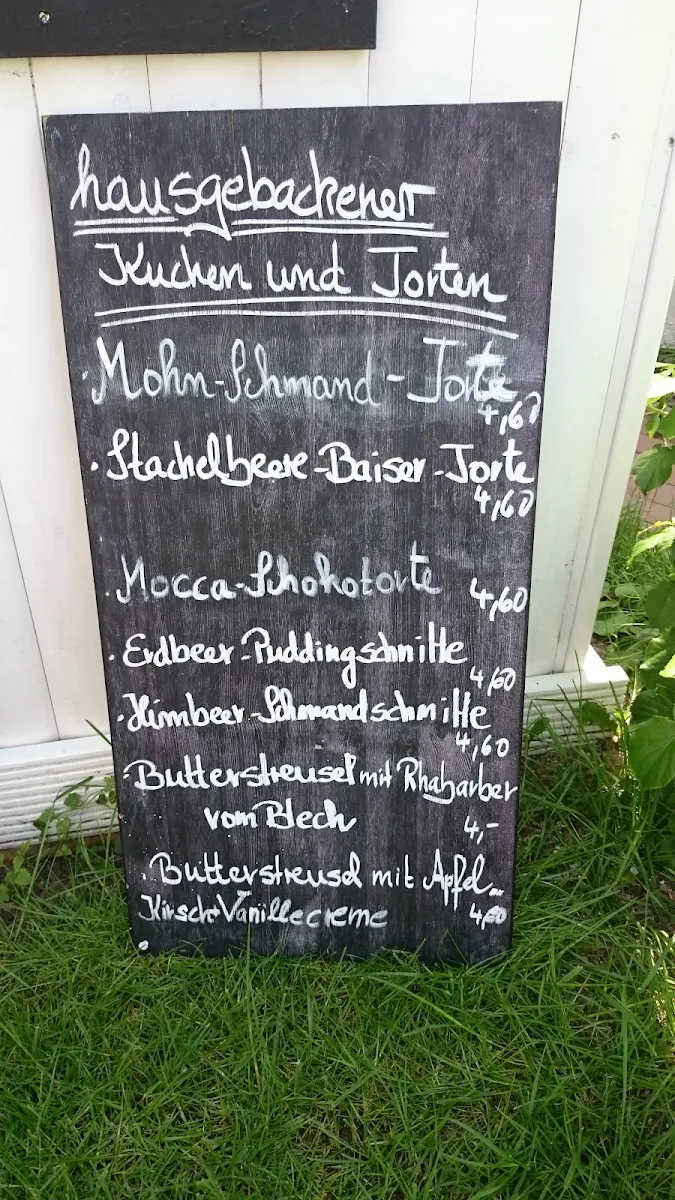 hausgebackener
Kuchen und Torten
· Mohn-Schmand-Torte
4,60
· Stachelbeere-Baiser-Torte
4,60
· Mocca-Schokotorte 4,60
· Erdbeer-Puddingschnitte
4,60
· Himbeer-Schmandschnitte
4,60
· Butterstreusel mit Rhabarber
vom Blech 4,-
· Butterstreusel mit Apfel..
Kirsch+Vanillecreme 4,60